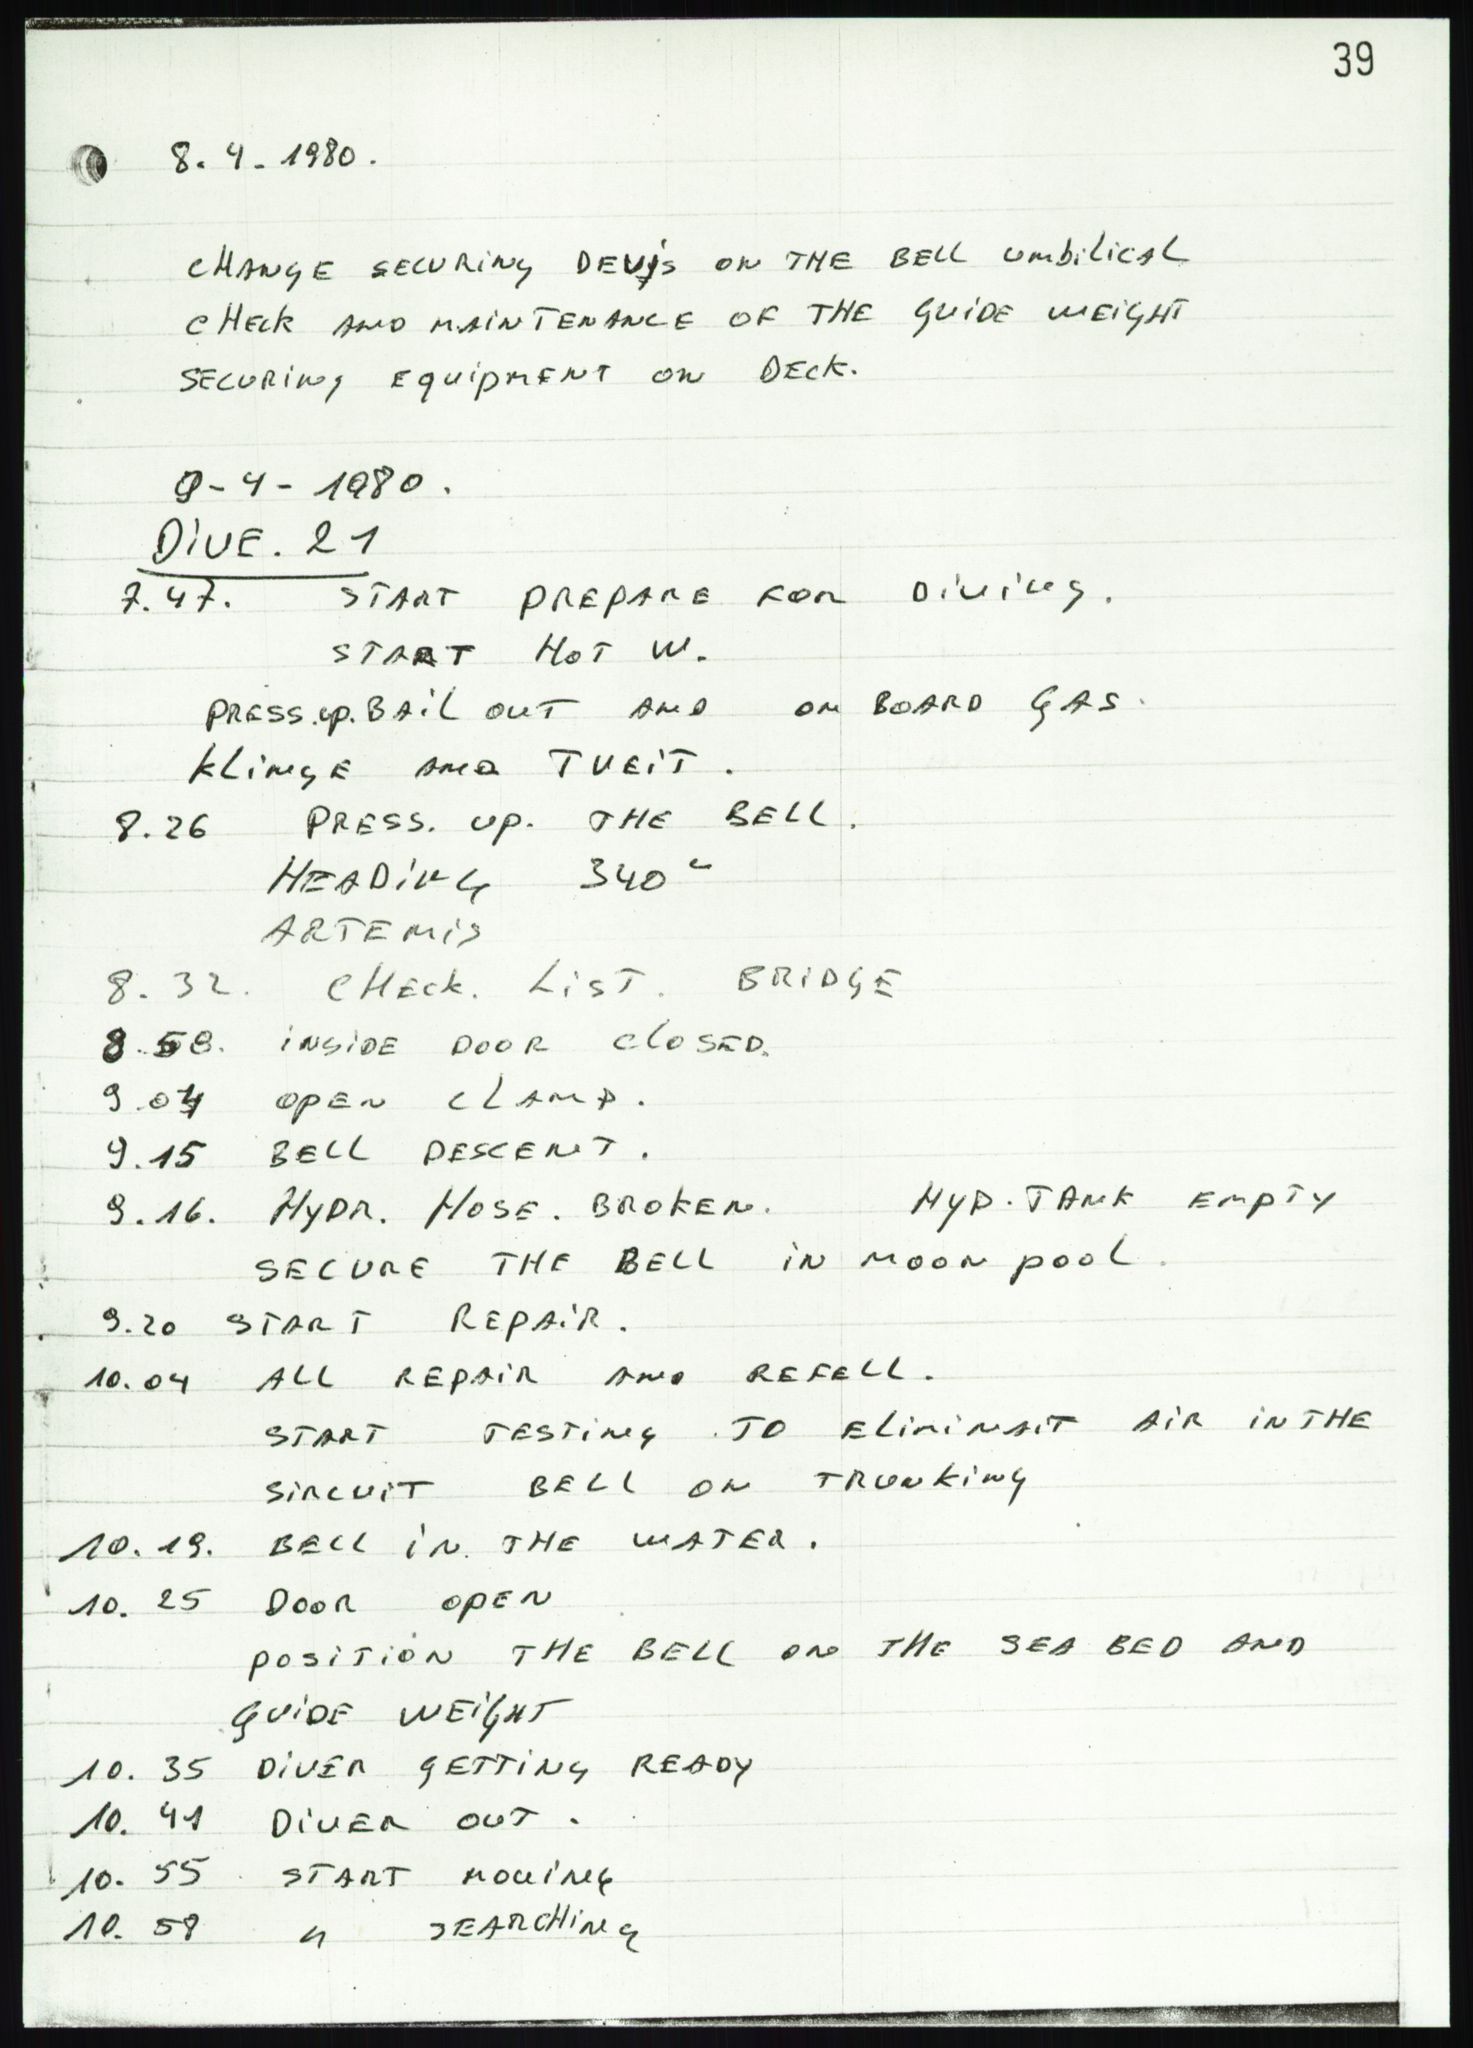 39
8.4.1980.
CHANGE SECURING DEVIS ON THE BELL UMBILICAL
CHECK AND MAINTENANCE OF THE GUIDE WEIGHT
SECURING EQUIPMENT ON DECK.
9-4-1980.
DIVE. 21
7.47. START PREPARE FOR DIVING.
START HOT W.
PRESS.UP.BAIL OUT AND ON BOARD GAS.
KLINGE AND TVEIT.
8.26 PRESS. UP. THE BELL.
HEADING 340°
ARTEMIS
8.32. CHECK. LIST. BRIDGE
8.58. INSIDE DOOR CLOSED.
9.04 OPEN CLAMP.
9.15 BELL DESCENT.
9.16. HYDR. HOSE. BROKEN. HYD. TANK EMPTY
SECURE THE BELL IN MOON POOL.
9.20 START REPAIR.
10.04 ALL REPAIR AND REFELL.
START TESTING TO ELIMINAIT AIR IN THE
SIRCUIT BELL ON TRUNKING
10.19. BELL IN THE WATER.
10.25 DOOR OPEN
POSITION THE BELL ON THE SEA BED AND
GUIDE WEIGHT
10.35 DIVER GETTING READY
10.41 DIVER OUT.
10.55 START MOVING
10.58 " SEARCHING